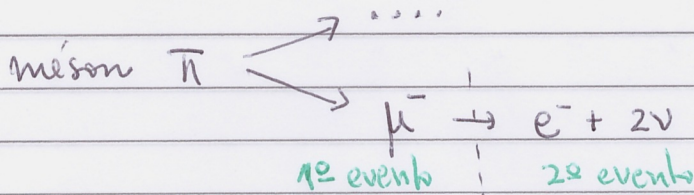 ....
méson π
μ⁻ → e⁻ + 2ν
1º evento 2º evento